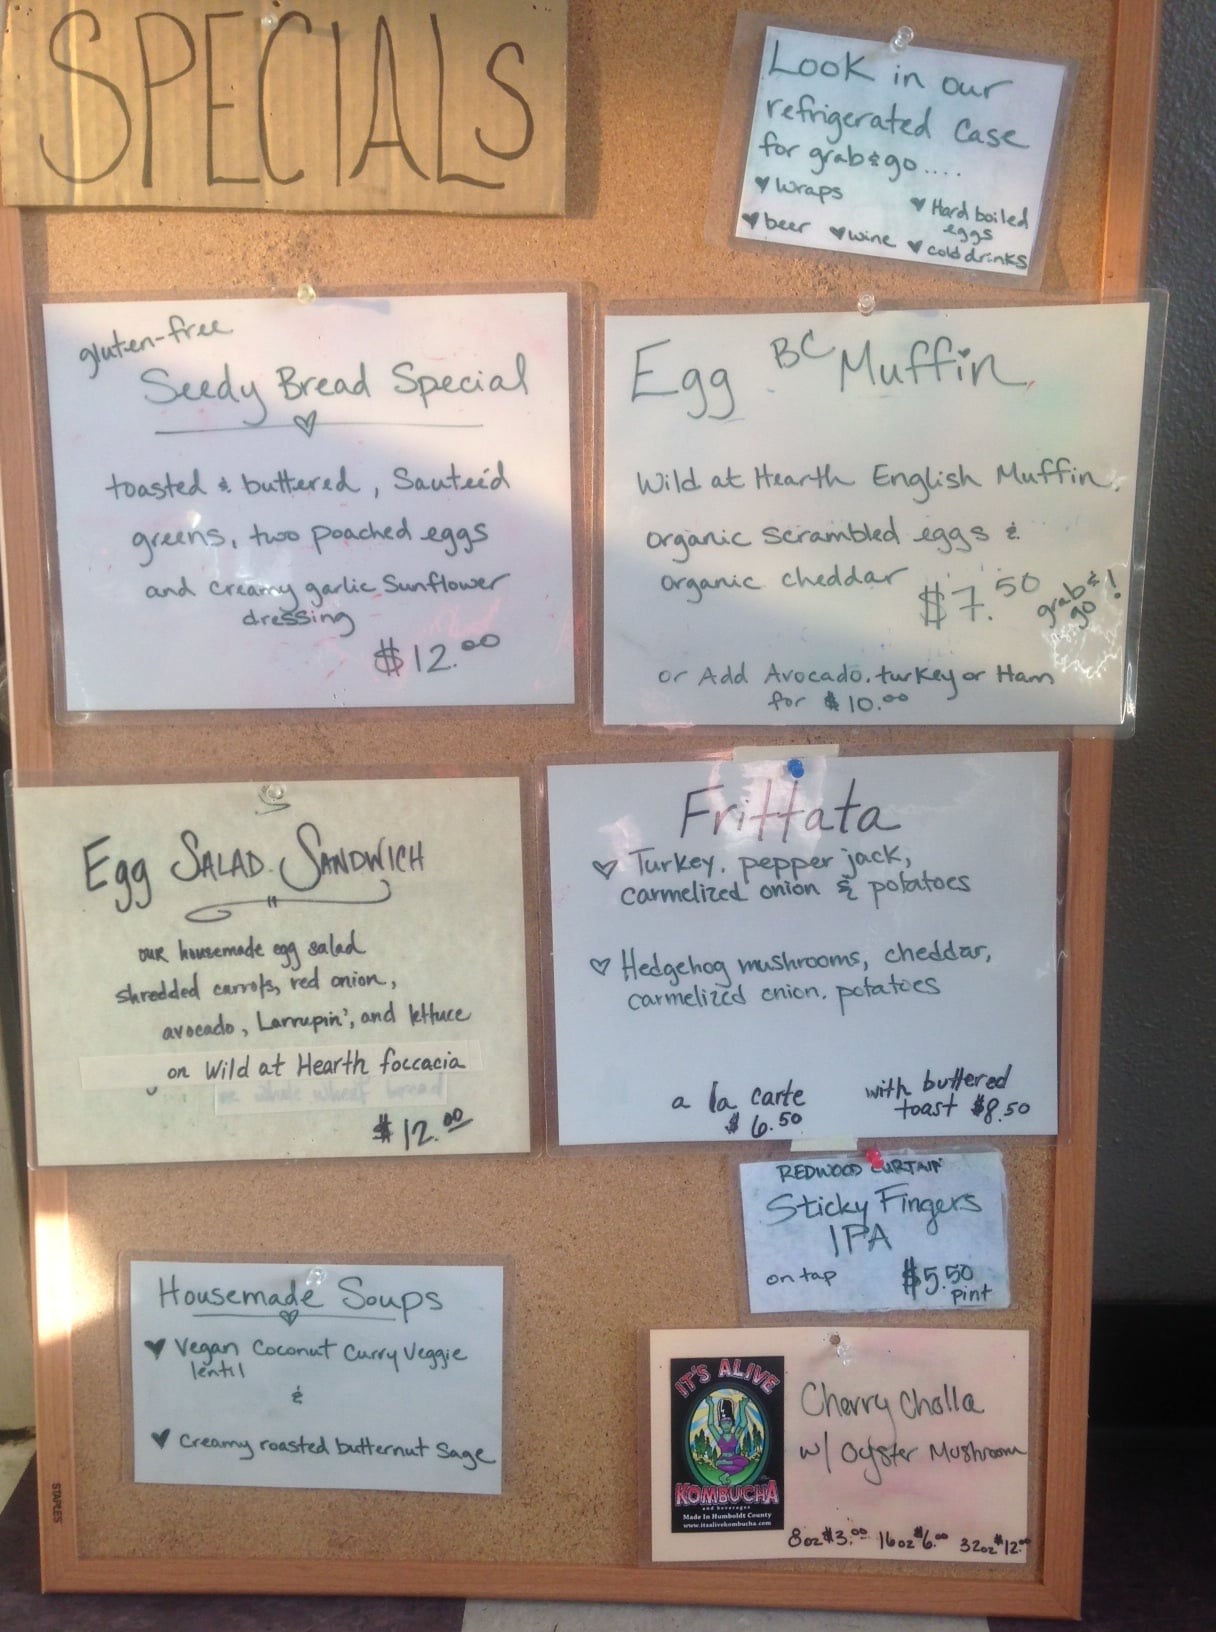 SPECIALS
Look in our
refrigerated Case
for grab & go....
♥ wraps
♥ Hard boiled
eggs
♥ beer ♥ wine ♥ cold drinks
gluten-free
Seedy Bread Special
toasted & buttered, Sauteéd
greens, two poached eggs
and creamy garlic Sunflower
dressing
$12.00
Egg BC Muffin
Wild at Hearth English Muffin,
organic scrambled eggs &
organic cheddar $7.50 grab &
go!
or Add Avocado, turkey or Ham
for $10.00
Egg SALAD SANDWICH
our housemade egg salad
shredded carrots, red onion,
avocado, Larrupin', and lettuce
on Wild at Hearth foccacia
$12.00
Frittata
♡ Turkey, pepper jack,
carmelized onion & potatoes
♡ Hedgehog mushrooms, cheddar,
carmelized onion, potatoes
a la carte
$6.50
with buttered
toast $8.50
REDWOOD CURTAIN
Sticky Fingers
IPA
on tap $5.50
pint
Housemade Soups
♥ Vegan Coconut Curry Veggie
lentil
&
♥ Creamy roasted butternut Sage
IT'S ALIVE
KOMBUCHA
and beverages
Made In Humboldt County
www.itsalivekombucha.com
Cherry Cholla
w/ Oyster Mushroom
8oz $3.00 16oz $6.00 32oz $12.00
STAPLES